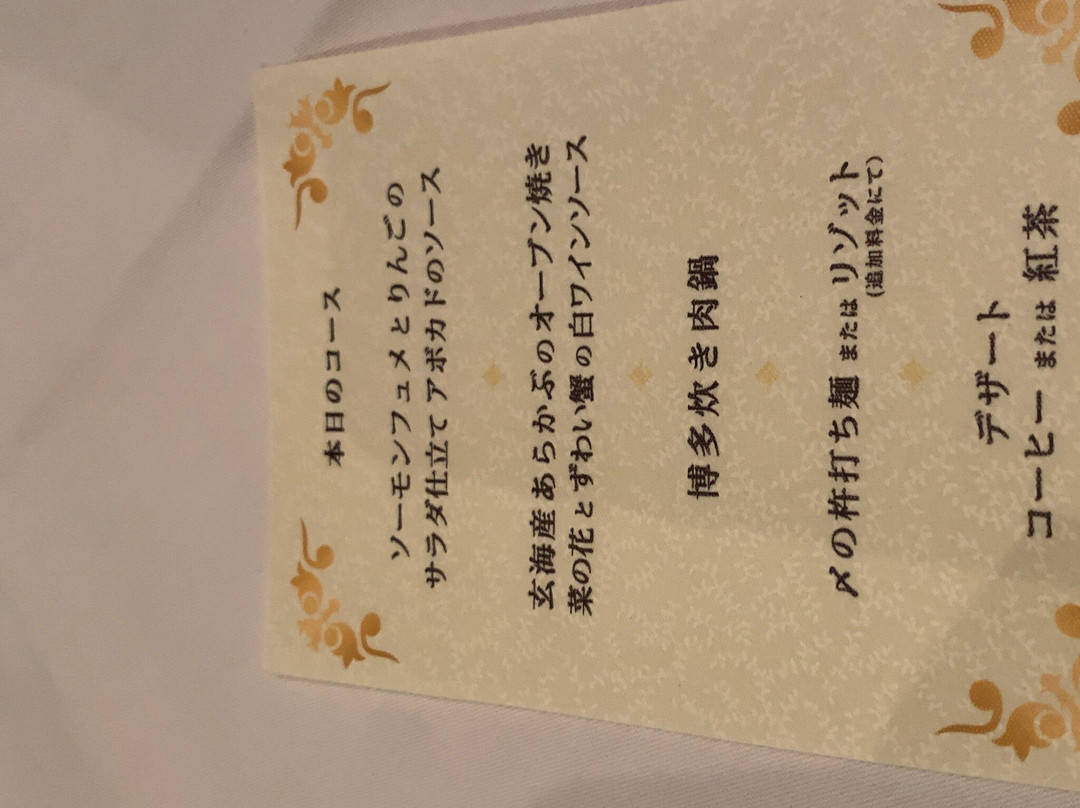 本日のコース
ソーモンフュメとりんごの
サラダ仕立て アボカドのソース
玄海産あらかぶのオーブン焼き
菜の花とずわい蟹の白ワインソース
博多炊き肉鍋
〆の杵打ち麺 または リゾット
(追加料金にて)
デザート
コーヒー または 紅茶